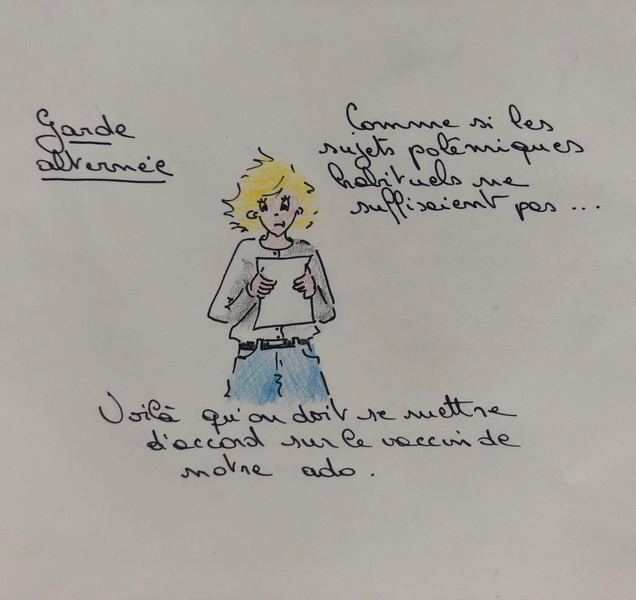 Garde
alternée
Comme si les
sujets polémiques
habituels ne
suffisaient pas ...
Voilà qu'on doit se mettre
d'accord sur le vaccin de
notre ado.